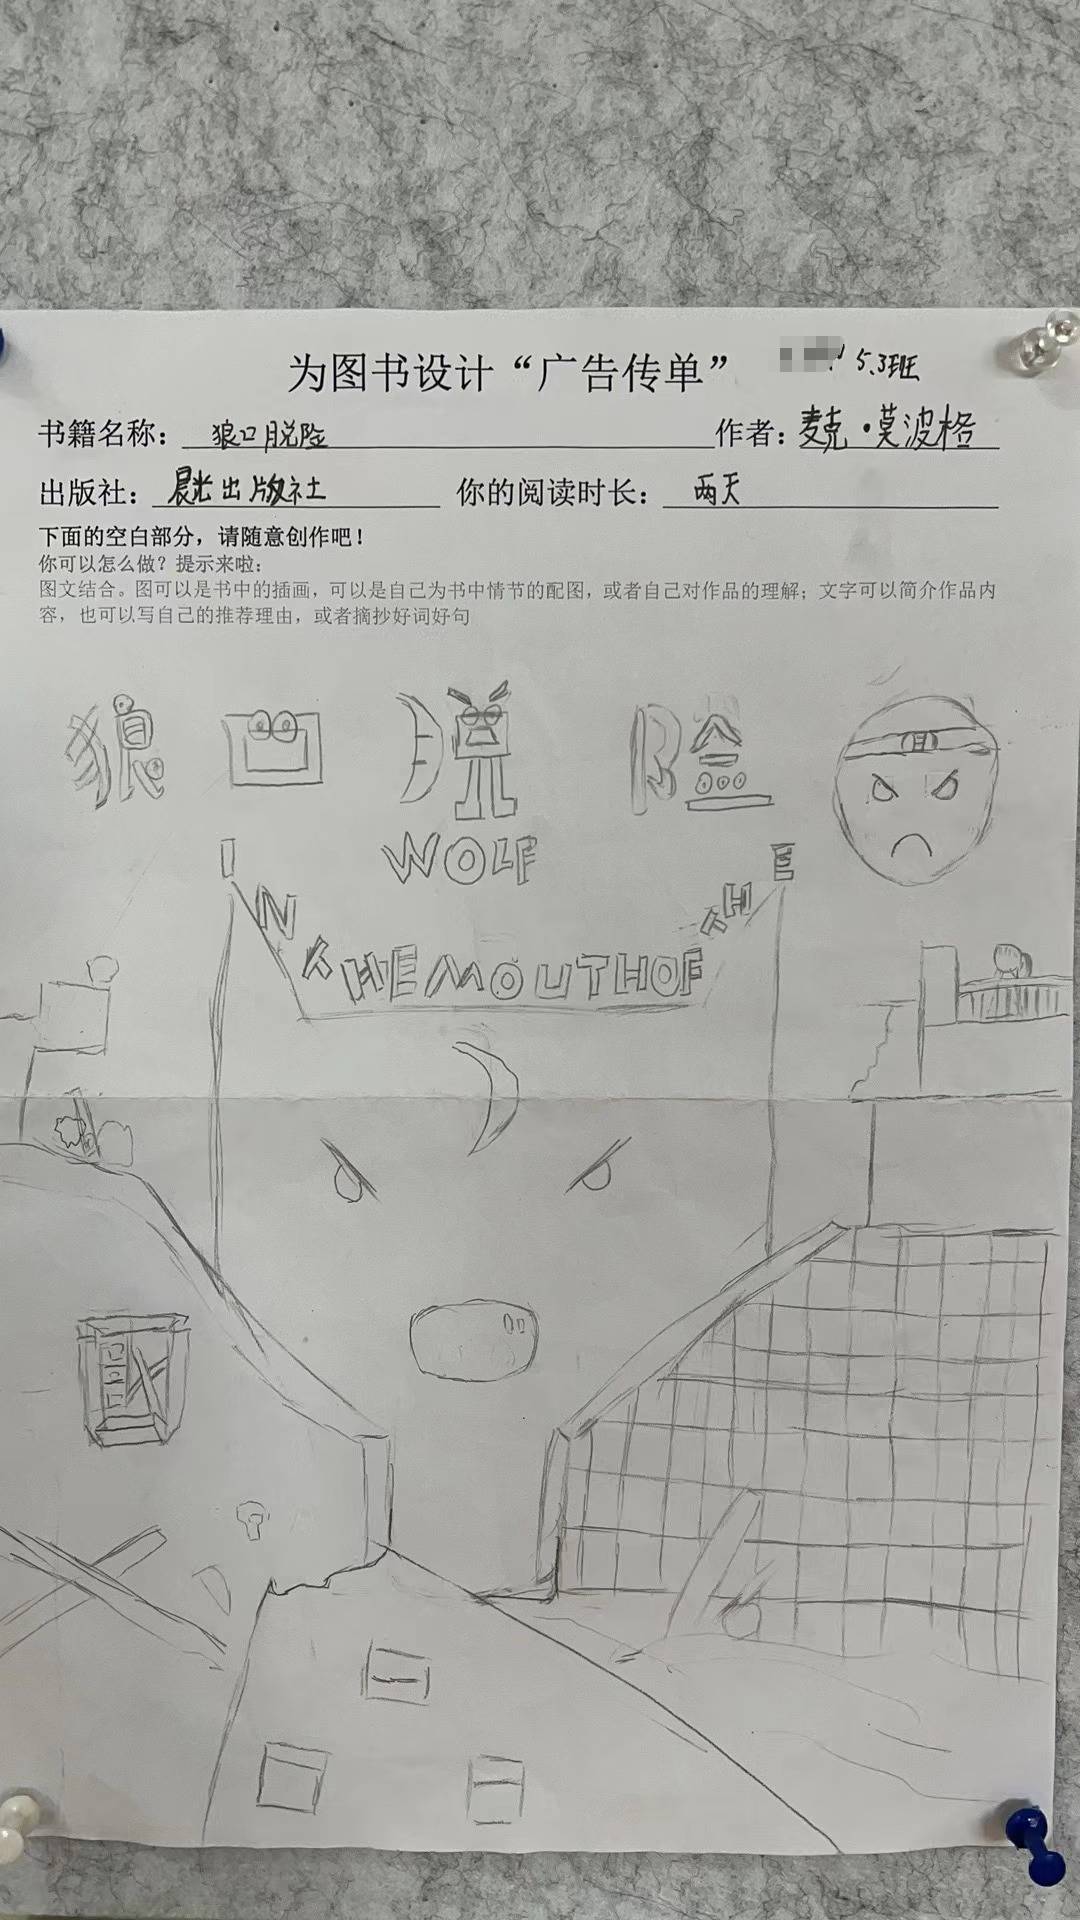 为图书设计“广告传单” 5.3班
书籍名称：狼口脱险 作者：麦克·莫波格
出版社：晨光出版社 你的阅读时长：两天
下面的空白部分，请随意创作吧！
你可以怎么做？提示来啦：
图文结合。图可以是书中的插画，可以是自己为书中情节的配图，或者自己对作品的理解；文字可以简介作品内
容，也可以写自己的推荐理由，或者摘抄好词好句
狼口脱险
WOLF
IN THE MOUTH OF THE